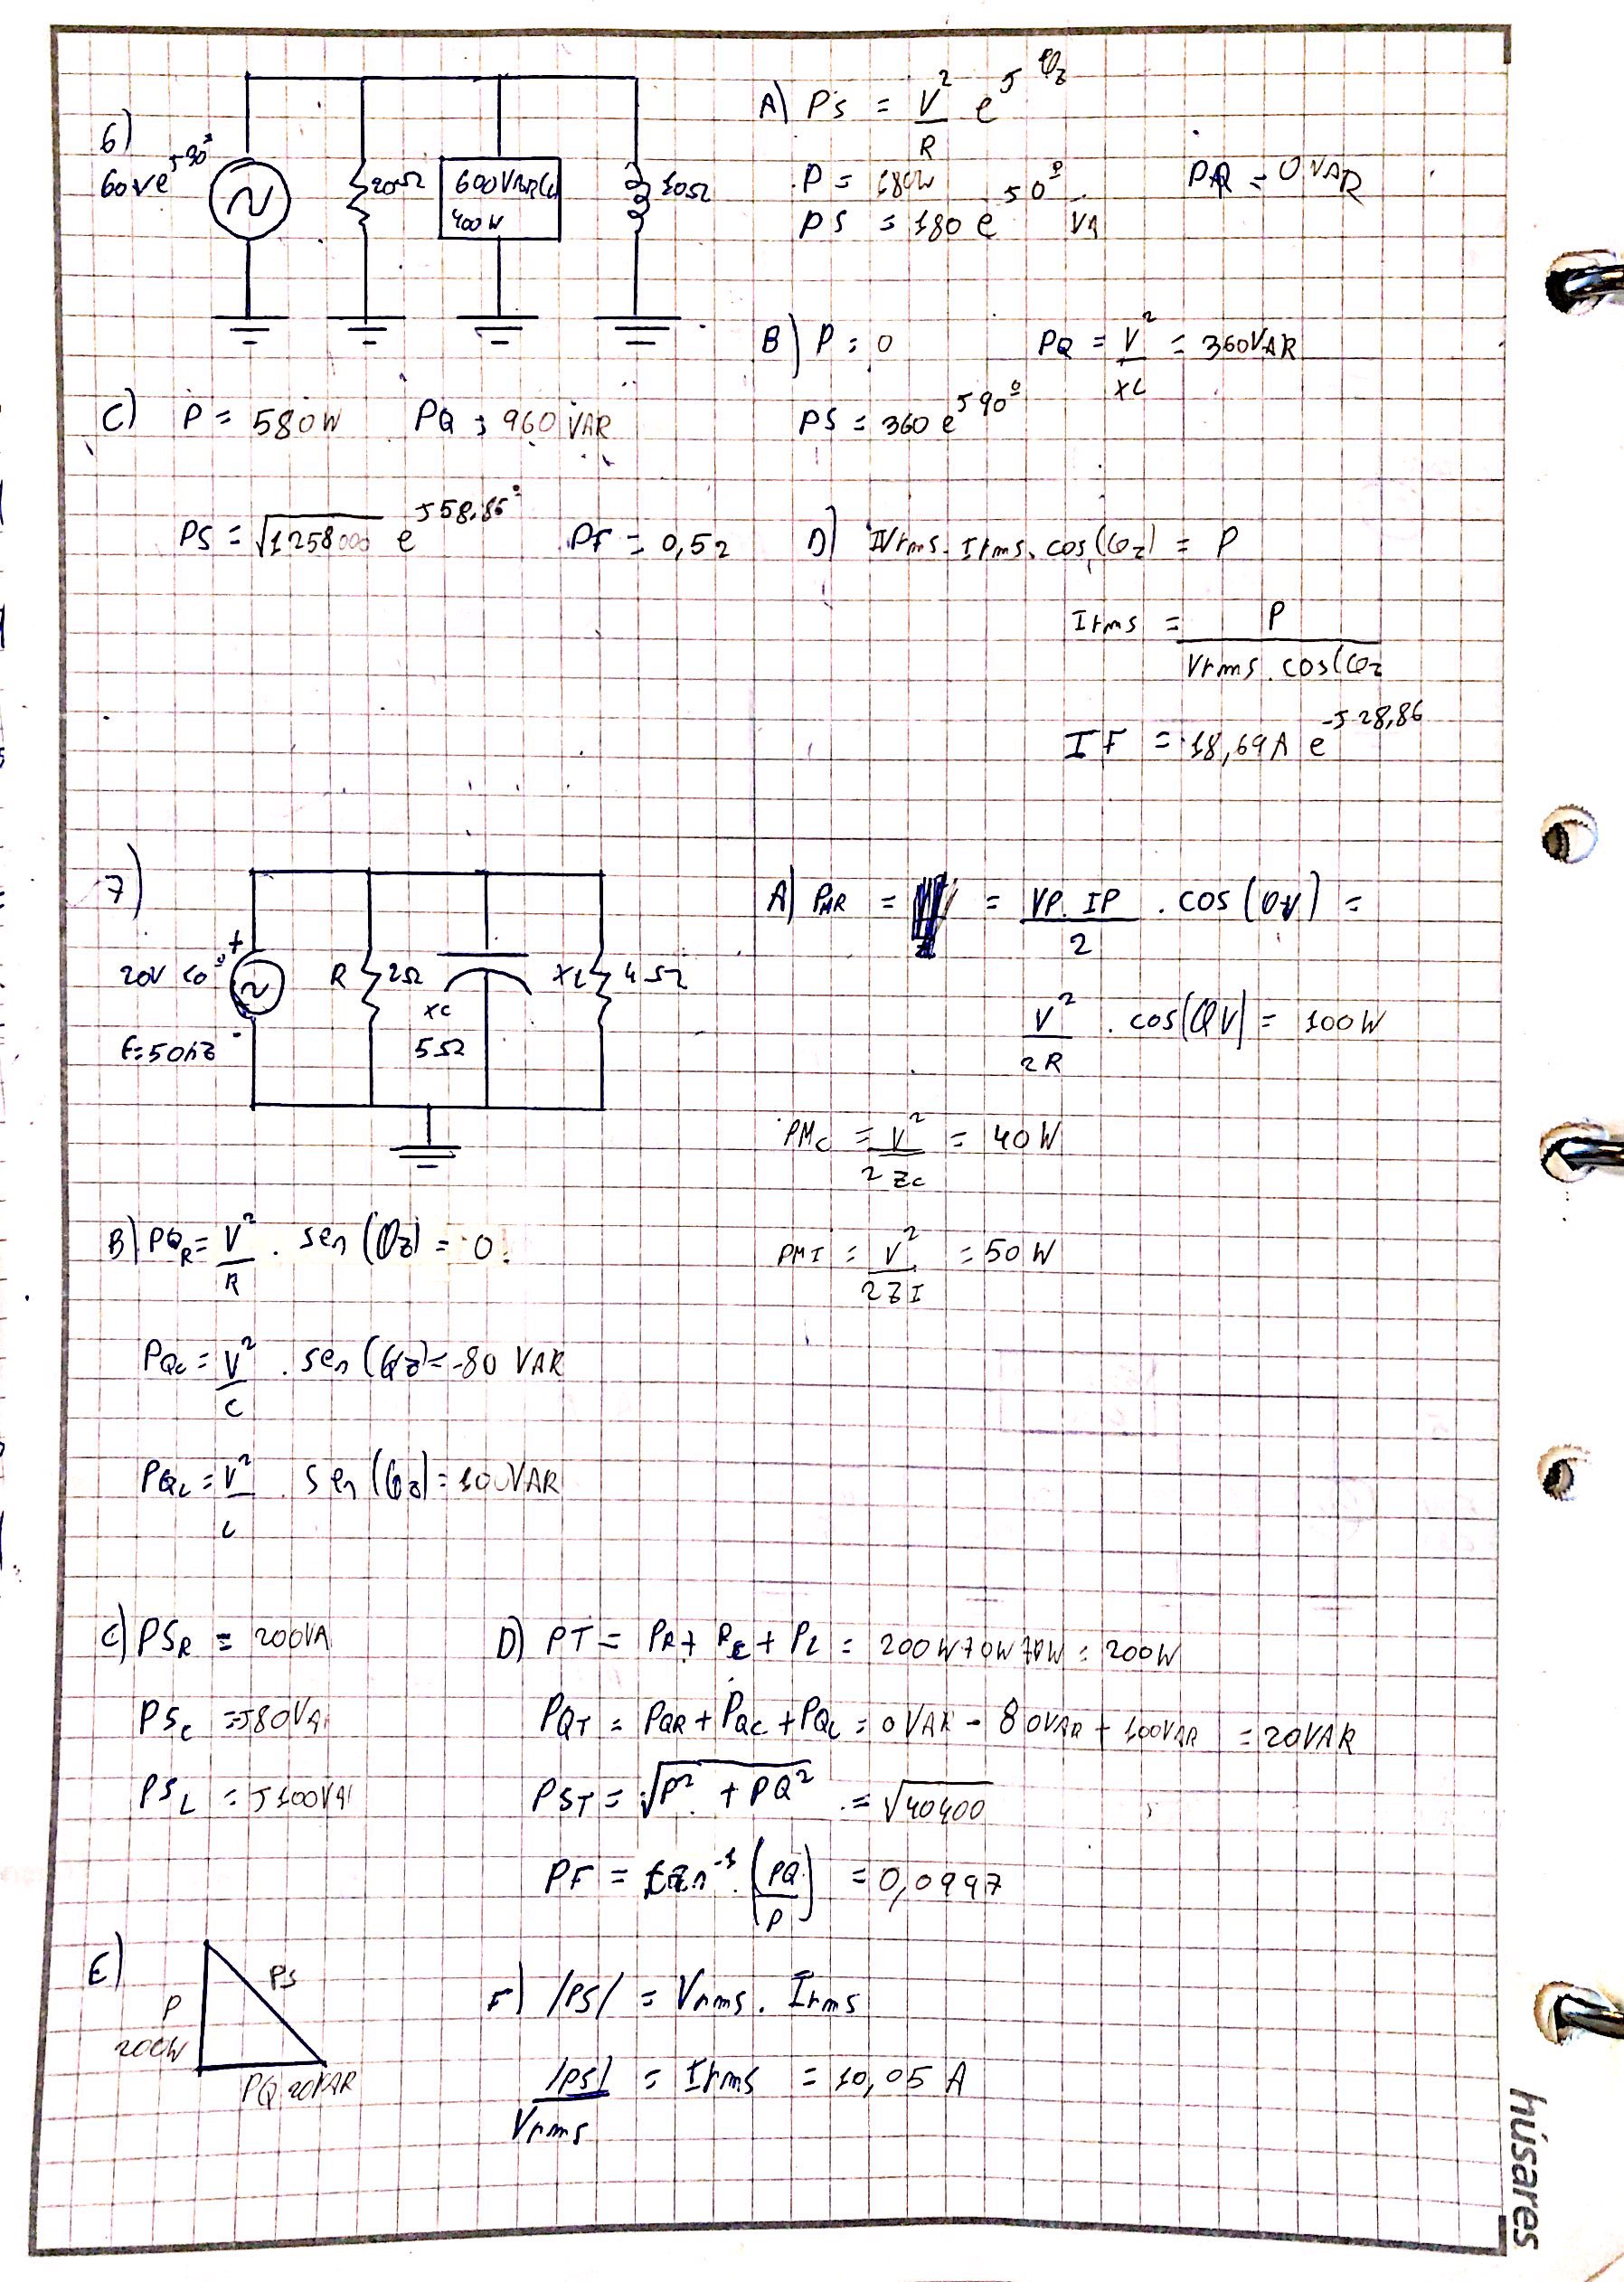 6)
60 V e^j30°
20Ω
600 VAR(L)
400 W
10Ω
A) PS = V²/R e^jφz
P = 180W
PQ = 0 VAR
PS = 180 e^j0° VA
B) P = 0
PQ = V²/XL = 360 VAR
PS = 360 e^j90°
C) P = 580 W PQ = 960 VAR
PS = √1258000 e^j58,86°
PF = 0,52
D) Vrms . Irms . cos(φz) = P
Irms = P / Vrms . cos(φz
IF = 18,69 A e^-j28,86
7)
+
20V ∠0°
-
F=50hz
R
2Ω
XC
5Ω
XL
4Ω
A) PMR = = VP . IP / 2 . cos (θV) =
V²/2R . cos(θV) = 100 W
PMC = V²/2ZC = 40 W
PMI = V²/2ZI = 50 W
B) PQR = V²/R . sen (θz) = 0
PQC = V²/C . sen (φz) = -80 VAR
PQL = V²/L . sen (φz) = 100 VAR
C) PSR = 200VA
PSC = -j80VA
PSL = j100VA
D) PT = PR + PC + PL = 200 W + 0W + 0W = 200 W
PQT = PQR + PQC + PQL = 0 VAR - 80 VAR + 100 VAR = 20 VAR
PST = √P² + PQ² = √40400
PF = tan⁻¹ (PQ/P) = 0,0997
E)
P
200W
PS
PQ 20VAR
F) |PS| = Vrms . Irms
|PS|/Vrms = Irms = 10,05 A
húsares